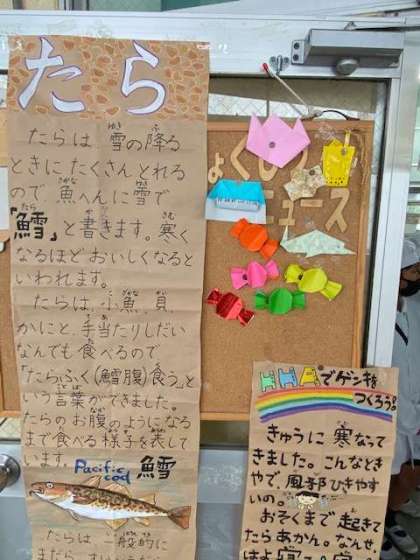 たら
たらは 雪の降る
ときにたくさんとれる
ので 魚へんに雪で
「鱈」と書きます。寒く
なるほどおいしくなると
いわれます。
たらは、小魚、貝、
かにと、手当たりしだい
なんでも食べるので
「たらふく(鱈腹)食う」と
いう言葉ができました。
たらのお腹のようになる
まで食べる様子を表して
います。
Pacific cod
鱈
たらは 一般的に
ょくしつ
ニュース
でゲンキ
つくろう!
きゅうに 寒なって
きました。こんなとき
やで、風邪ひきやす
いの。
おそくまで 起きて
たらあかん。なんせ